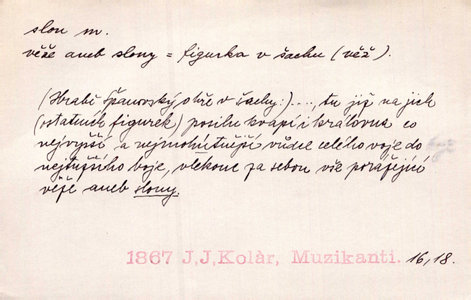 slon m.
věže aneb slony = figurka v šachu (věž).
(Hrabě Španovský hře v šachy:)...., tu již na jich
(ostatních figurek) posilu kvapí i královna co
nejvyšší a nejmohútnější vůdce celého voje do
nejtužšího boje, vlekouc za sebou vše porážející
věže aneb slony.
1867 J,J,Kolár, Muzikanti. 16,18.